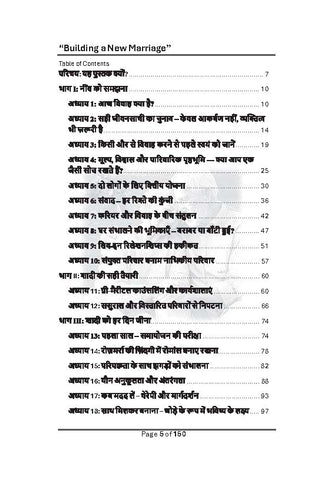 “Building a New Marriage”
Table of Contents
परिचय: यह पुस्तक क्यों? 7
भाग I: नींव को समझना 10
अध्याय 1: आप विवाह क्या है? 10
अध्याय 2: सही जीवनसाथी का चुनाव – केवल आकर्षण नहीं, व्यक्तित्व
भी ज़रूरी है 14
अध्याय 3: किसी और से विवाह करने से पहले स्वयं को जानें 19
अध्याय 4: मूल्य, विश्वास और पारिवारिक पृष्ठभूमि — क्या आप एक
जैसी सोच रखते हैं? 25
अध्याय 5: दो लोगों के लिए वित्तीय योजना 30
अध्याय 6: संवाद – हर रिश्ते की कुंजी 36
अध्याय 7: करियर और विवाह के बीच संतुलन 42
अध्याय 8: घर संभालने की भूमिकाएँ – बराबर या बाँटी हुई? 47
अध्याय 9: लिव-इन रिलेशनशिप्स की हकीकत 51
अध्याय 10: संयुक्त परिवार बनाम नाभिकीय परिवार 57
भाग II: शादी की सही तैयारी 60
अध्याय 11: प्री-मैरिटल काउंसलिंग और कार्यशालाएं 60
अध्याय 12: ससुराल और विस्तारित परिवारों से निपटना 66
भाग III: शादी को हर दिन जीना 74
अध्याय 13: पहला साल – समायोजन की परीक्षा 74
अध्याय 14: रोज़मर्रा की ज़िंदगी में रोमांस बनाए रखना 78
अध्याय 15: परिपक्वता के साथ झगड़ों को संभालना 82
अध्याय 16: यौन अनुकूलता और अंतरंगता 88
अध्याय 17: कब मदद लें – थेरेपी और मार्गदर्शन 93
अध्याय 18: साथ मिलकर बनाना – जोड़े के रूप में भविष्य के लक्ष्य 97
Page 5 of 150